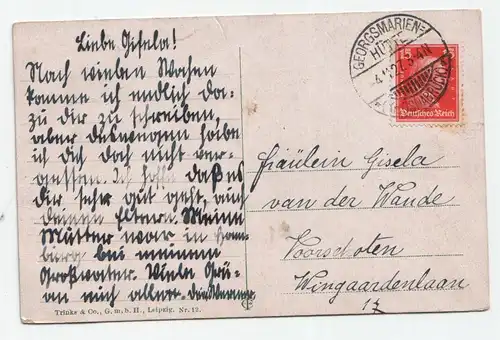 Liebe Gisela!
Nach vielen Wochen
komme ich endlich da-
zu dir zu schreiben,
aber deswegen habe
ich dich doch nicht ver-
gessen. Ich hoffe daß es
dir sehr gut geht, auch
deinen Eltern. Meine
Mutter war in Ham-
burg bei meinem
Großvater. Viele Grü-
an euch alle
Trinks & Co., G. m. b. H., Leipzig. Nr. 12.
GEORGSMARIEN=
HÜTTE
Deutsches Reich
Fräulein Gisela
van der Wande
Voorschoten
Wingaardenlaan
17